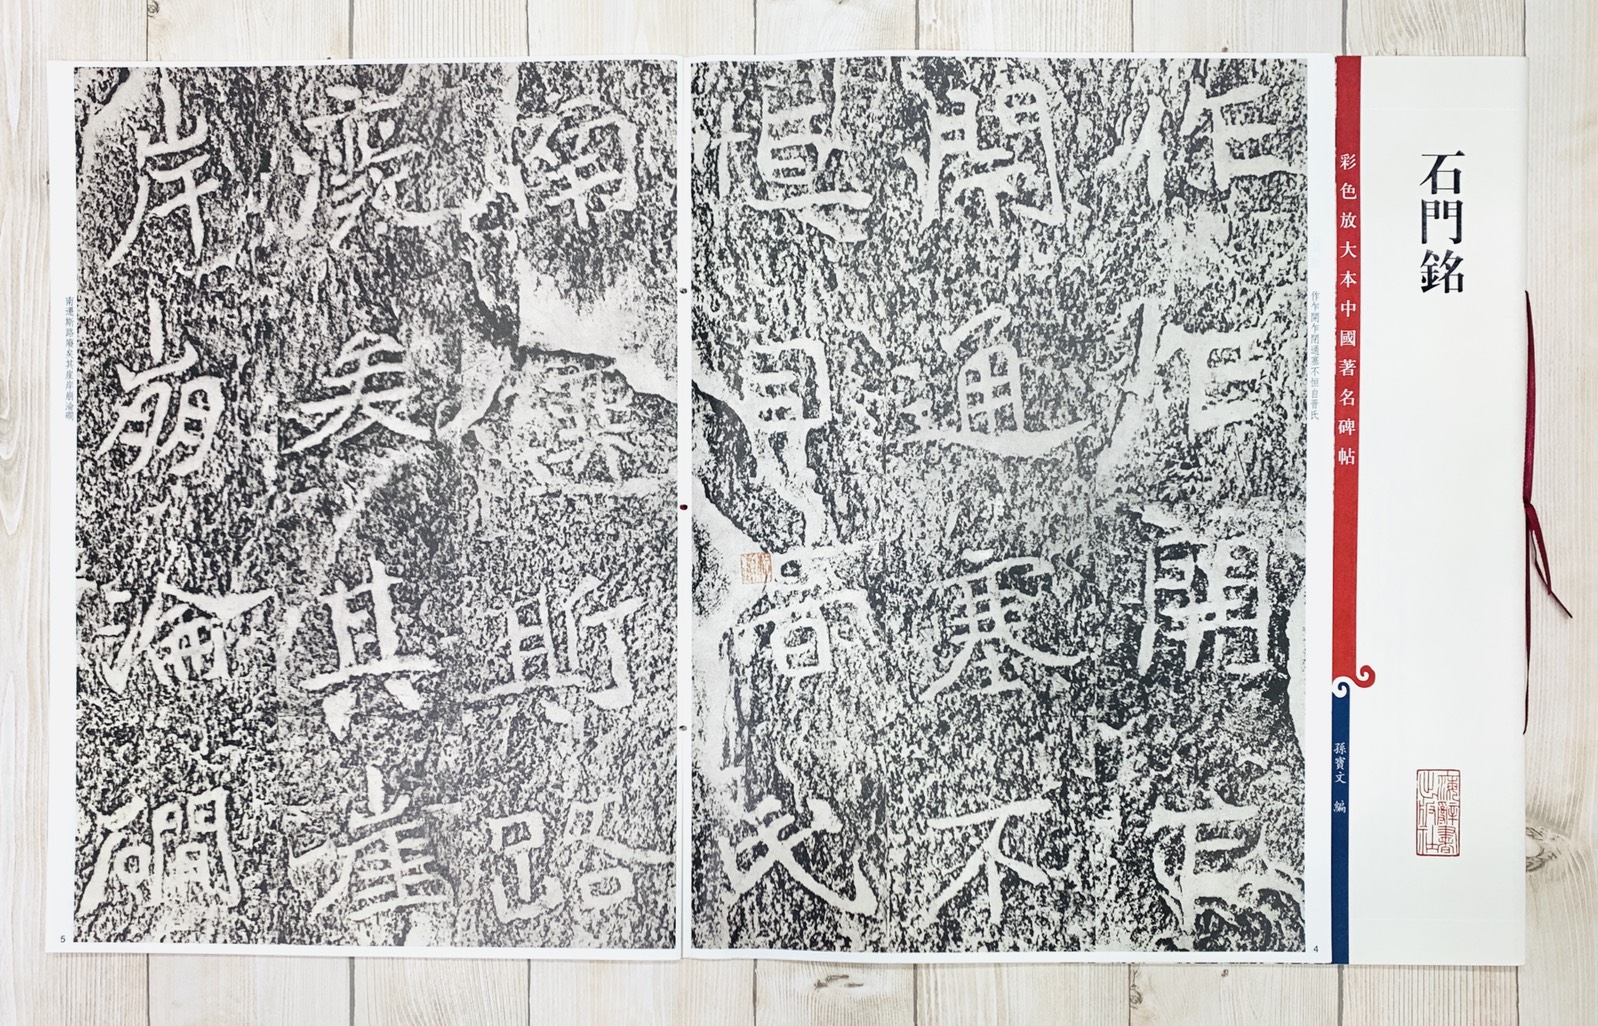 石門銘
上海辭書出版社
彩色放大本中國著名碑帖
孫寶文 編
作乍開乍閉通塞不恒自晉氏
作乍開乍
閉通塞不
恒自晉氏
4
南遷斯路
廢矣其崖
岸崩淪磵
南遷斯路廢矣其崖岸崩淪磵
5